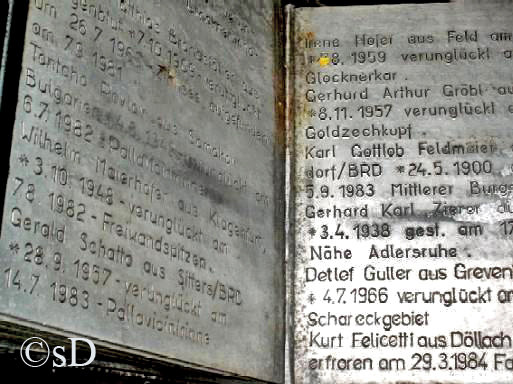 genblut *7.10.1956 verunglückt
am 26.7.196
am 7.9.1981
Bulgarien
6.7.1982 - Pallavicinirinne
Wilhelm Maierhofe- aus Klagenfurt,
*3.10.1948 - verunglückt am
7.8.1982 - Freiwandspitzen.
Gerald Schatta aus Sitters/BRD
*28.9.1957 - verunglückt am
14.7.1983 - Pallavicinirinne
Irene Hojer aus Feld am
8.1959 verunglückt a
Glocknerkar.
Gerhard Arthur Gröbl au
*8.11.1957 verunglückt
Goldzechkopf.
Karl Gottlob Feldmeier
dorf/BRD *24.5.1900
5.9.1983 Mittlerer Burgs
Gerhard Karl Zierer au
*3.4.1938 gest. am 17
Nähe Adlersruhe.
Detlef Guller aus Greven
* 4.7.1966 verunglückt am
Schareckgebiet
Kurt Felicetti aus Döllach
erfroren am 29.3.1984 Fa
©sD